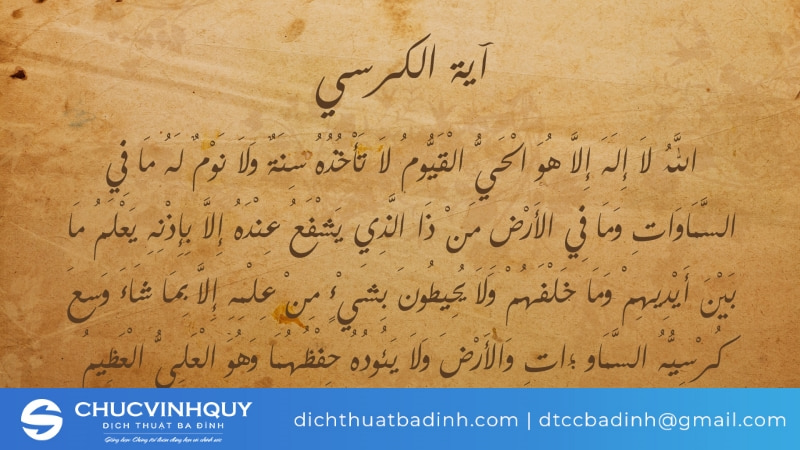 آية الكرسي
اللَّهُ لاَ إِلَهَ إِلاَّ هُوَ الْحَيُّ الْقَيُّومُ لاَ تَأْخُذُهُ سِنَةٌ وَلاَ نَوْمٌ لَهُ مَا فِي
السَّمَاوَاتِ وَمَا فِي الأَرْضِ مَنْ ذَا الَّذِي يَشْفَعُ عِنْدَهُ إِلاَّ بِإِذْنِهِ يَعْلَمُ مَا
بَيْنَ أَيْدِيهِمْ وَمَا خَلْفَهُمْ وَلاَ يُحِيطُونَ بِشَيْءٍ مِنْ عِلْمِهِ إِلاَّ بِمَا شَاءَ وَسِعَ
كُرْسِيُّهُ السَّمَاو ءاتِ وَالأَرْضَ وَلاَ يَئُودُهُ حِفْظُهُمَا وَهُوَ الْعَلِيُّ الْعَظِيمُ
CHUCVINHQUY
DỊCH THUẬT BA ĐÌNH
dichthuatbadinh.com | dtccbadinh@gmail.com